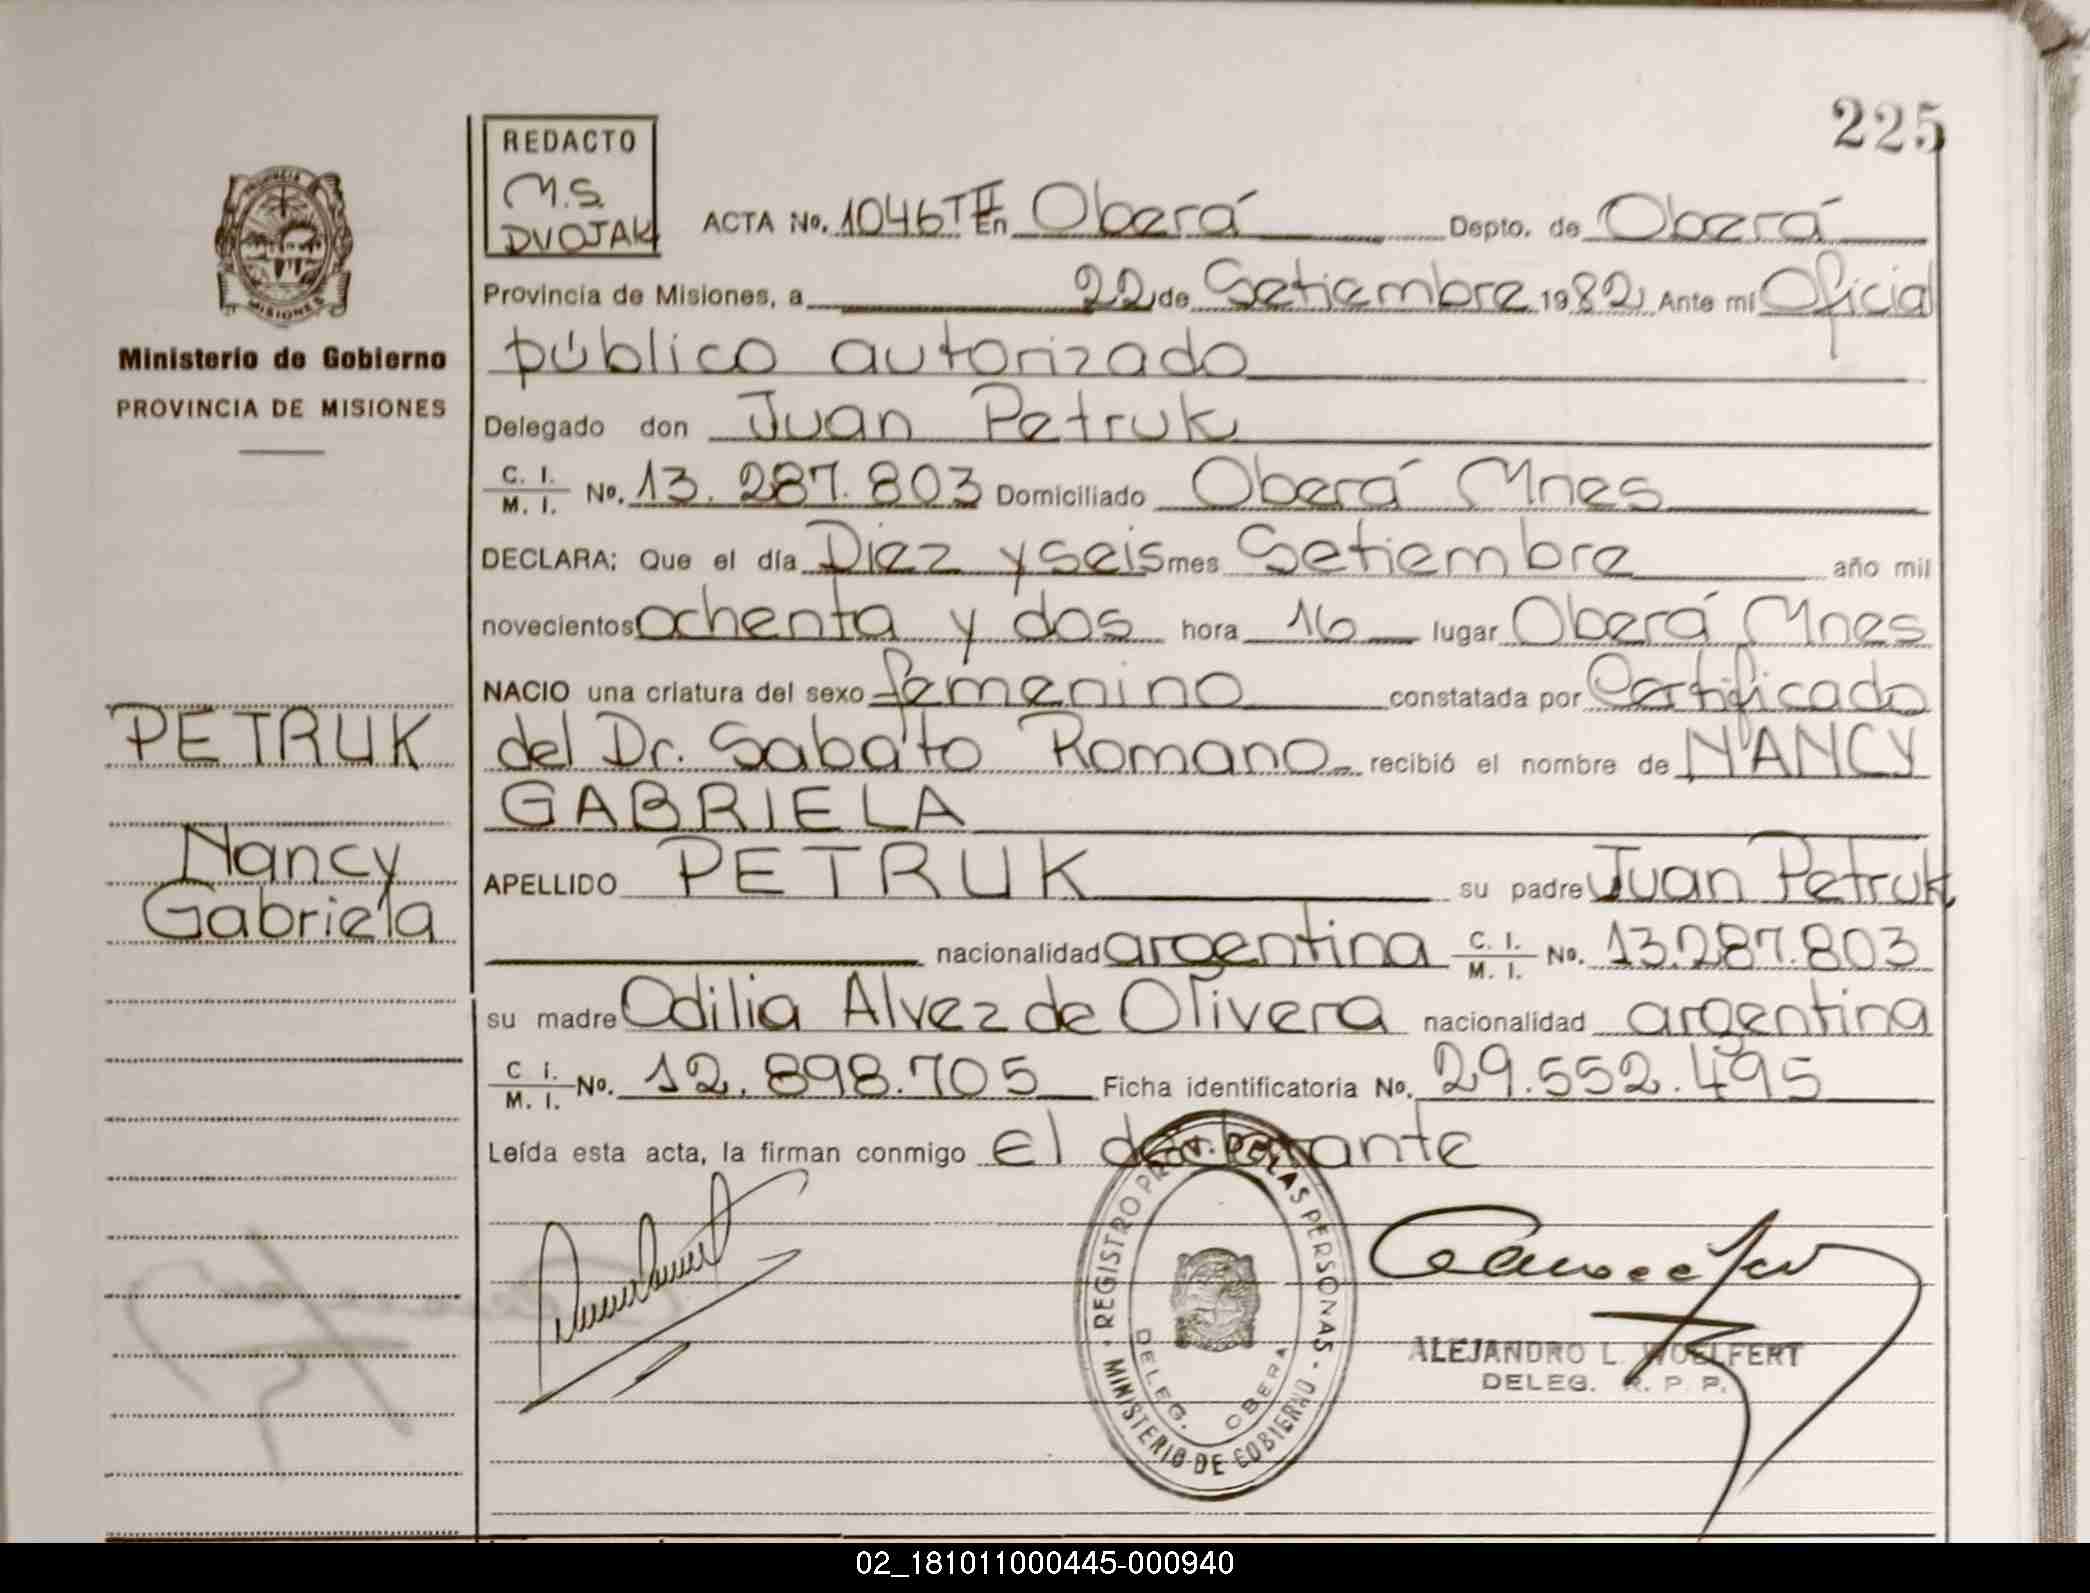 225
REDACTO
M.S.
DVOJAK
ACTA No. 1046 T II En Oberá Depto. de Oberá
Provincia de Misiones, a 22 de Setiembre 1982, Ante mí Oficial
público autorizado
Delegado don Juan Petruk
C. I. / M. I. No. 13.287.803 Domiciliado Oberá Mnes
DECLARA: Que el día Diez y seis mes Setiembre año mil
novecientos ochenta y dos hora 16 lugar Oberá Mnes
NACIO una criatura del sexo femenino constatada por Certificado
del Dr. Sabato Romano recibió el nombre de NANCY
GABRIELA
APELLIDO PETRUK su padre Juan Petruk
nacionalidad argentina C. I. / M. I. No. 13.287.803
su madre Odilia Alvez de Olivera nacionalidad argentina
C I. / M. I. No. 12.898.705 Ficha identificatoria No. 29.552.495
Leída esta acta, la firman conmigo el declarante
PROVINCIA
MISIONES
Ministerio de Gobierno
PROVINCIA DE MISIONES
PETRUK
Nancy
Gabriela
REGISTRO PROV. DE LAS PERSONAS - MINISTERIO DE GOBIERNO -
DELEG. OBERA
ALEJANDRO L. WOELFERT
DELEG. R. P. P.
02_181011000445-000940